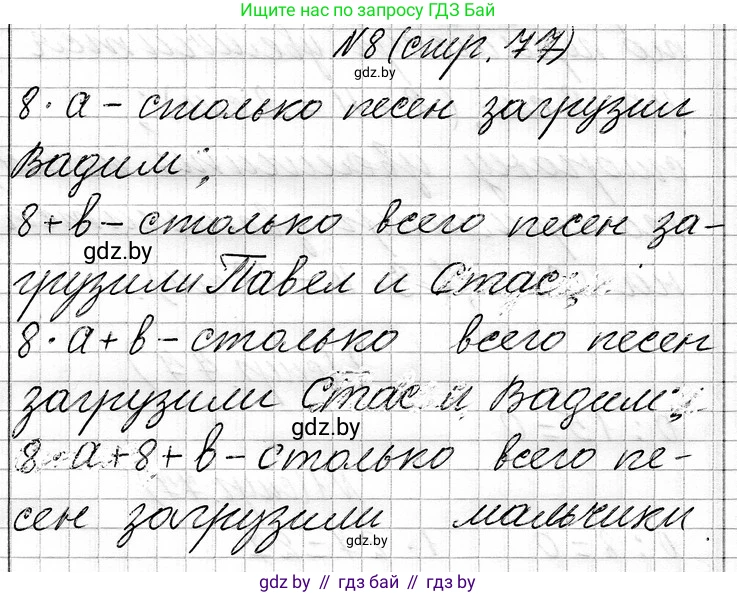 Ищите нас по запросу ГДЗ Бай
№8 (стр. 77)
gdz.by
8·а – столько песен загрузил
Вадим;
8+в – столько всего песен за-
gdz.by
грузили Павел и Стас;
8·а+в – столько всего песен
загрузили Стас и Вадим;
gdz.by
8·а+8+в – столько всего пе-
сен загрузили мальчики.
gdz.by
gdz.by // гдз бай // gdz.by